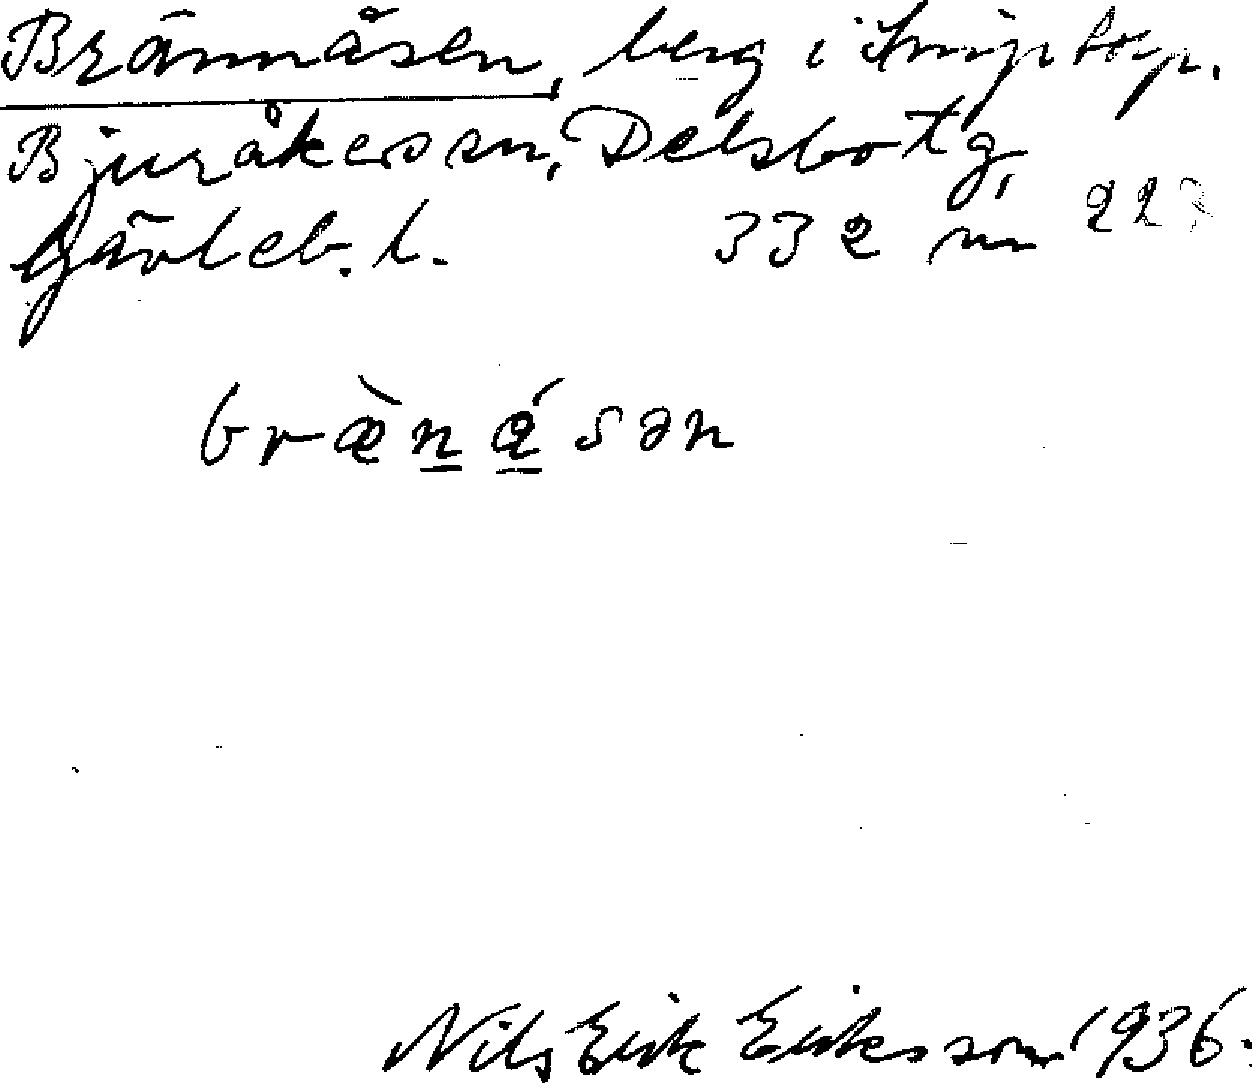 Brännåsen, berg i
Bjuråkers sn, Delsbo tg,
Gävleb. l. 332 m 22
bræ̀n̲ǻ̲sən
Nils Erik Eriksson 1936.